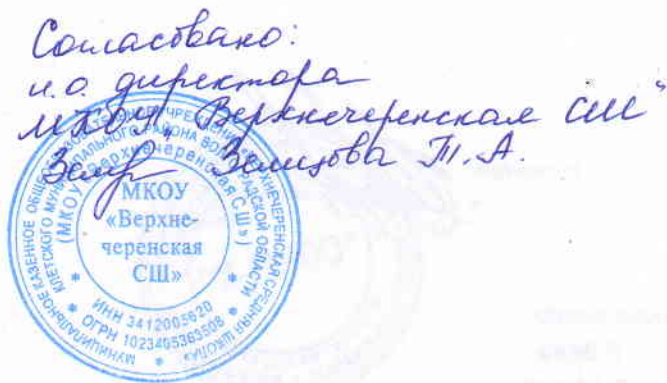 Согласовано:
и.о. директора
МКОУ „Верхнечеренская СШ"
Земцова Т.А.
МУНИЦИПАЛЬНОЕ КАЗЕННОЕ ОБЩЕОБРАЗОВАТЕЛЬНОЕ УЧРЕЖДЕНИЕ «ВЕРХНЕЧЕРЕНСКАЯ СРЕДНЯЯ ШКОЛА»
КЛЕТСКОГО МУНИЦИПАЛЬНОГО РАЙОНА ВОЛГОГРАДСКОЙ ОБЛАСТИ
(МКОУ «Верхнечеренская СШ»)
МКОУ
«Верхне-
черенская
СШ»
* ИНН 3412005620 *
* ОГРН 1023405363508 *